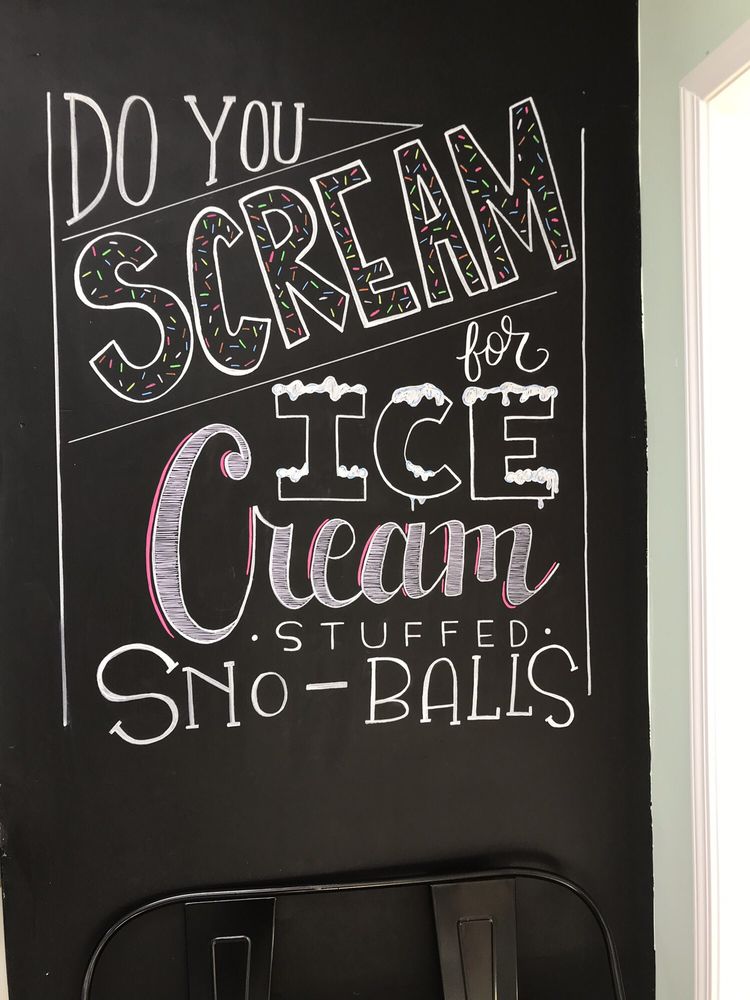 DO YOU
SCREAM
for
ICE
Cream
• STUFFED •
SNO-BALLS